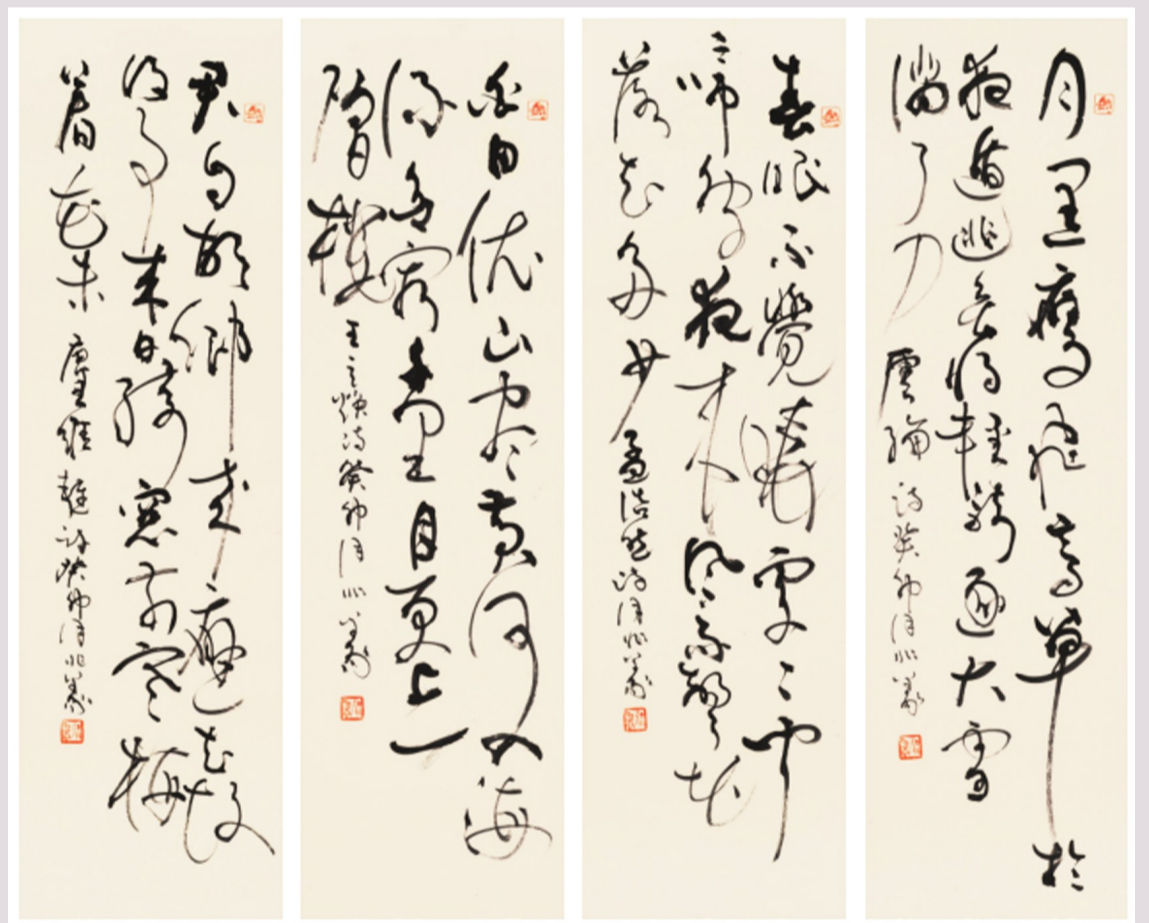 月黑雁飛高單於
夜遁逃欲將輕騎逐大雪
滿弓刀 盧綸詩癸卯
春眠不覺曉處々聞
啼鳥夜来風雨聲花
落知多少 孟浩然詩
白日依山盡黃河入海
流欲窮千里目更上一
層樓 王之渙詩癸卯
君自故鄉来應知故
鄉事来日綺窓前寒梅
著花未 唐王維雜詩癸卯